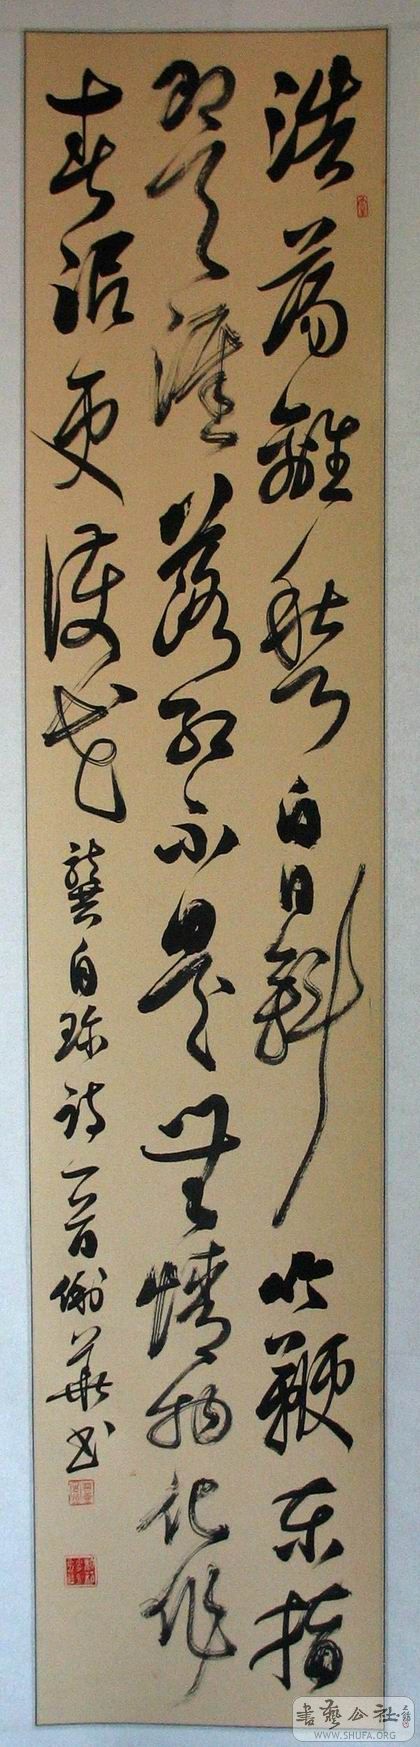 浩荡離愁白日斜吟鞭东指
即天涯落红不是無情物化作
春泥更護花
龔自珍诗一首華书
書藝公社
WWW.SHUFA.ORG